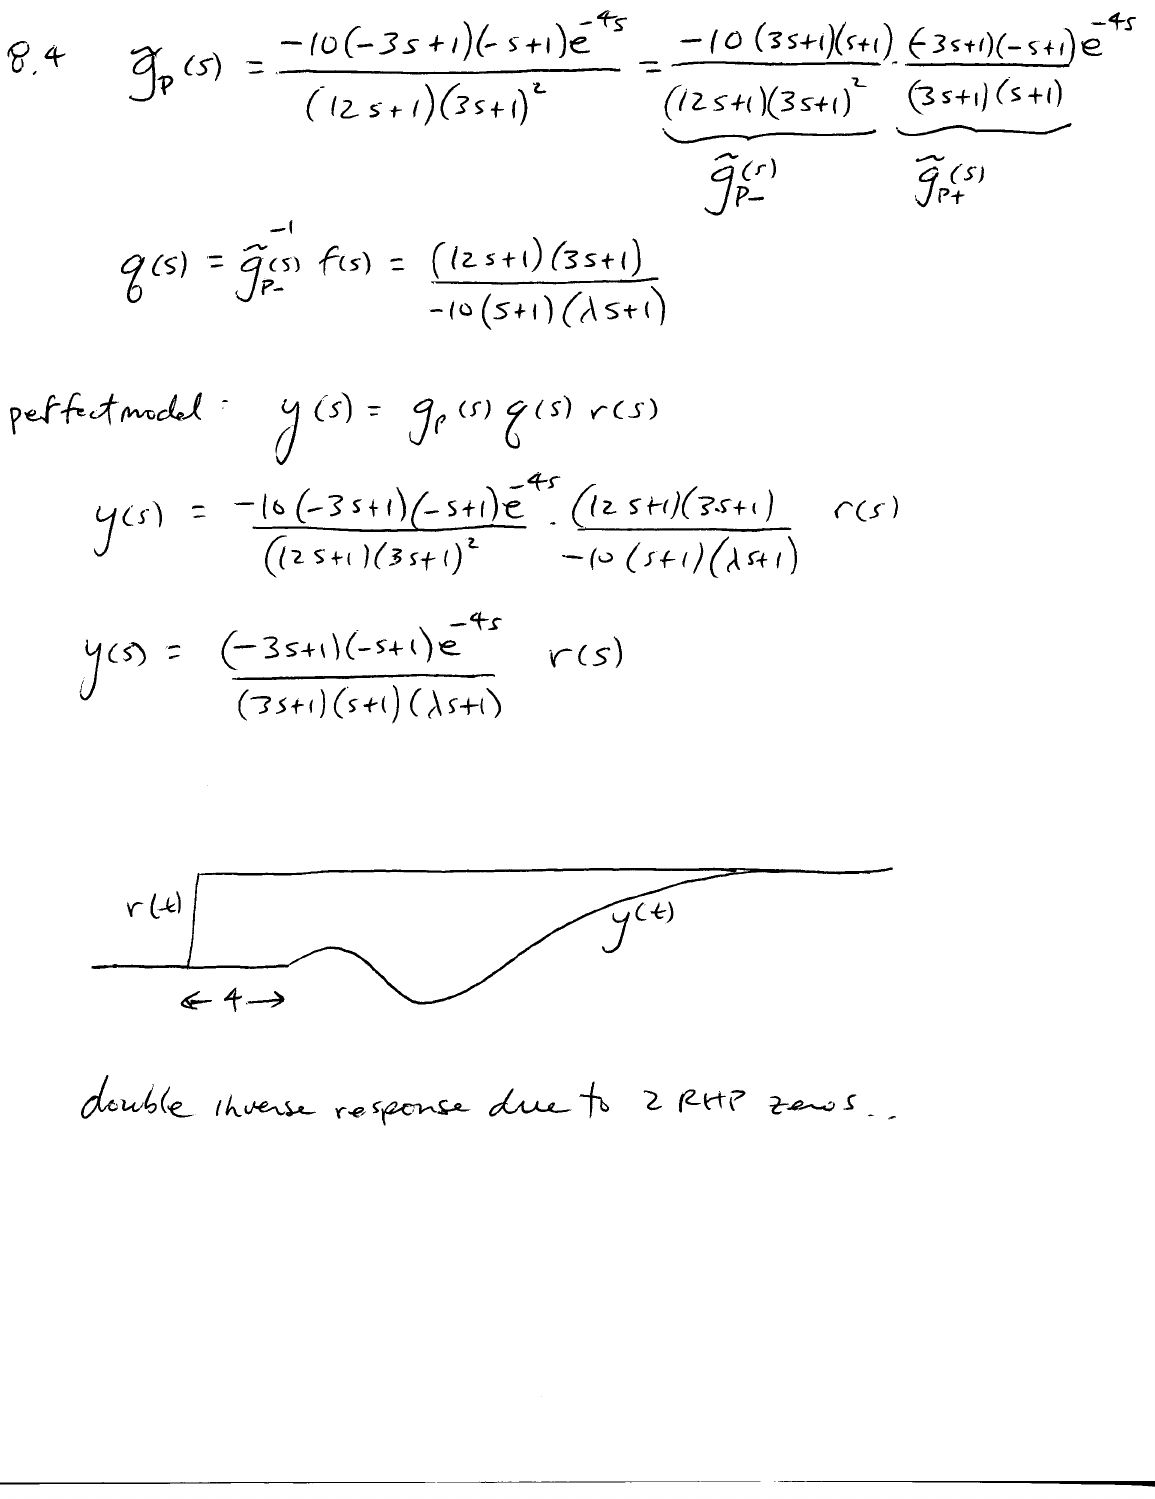 8.4 g̃p(s) = -10(-3s+1)(-s+1)e^-4s / (12s+1)(3s+1)^2 = -10(3s+1)(s+1) / (12s+1)(3s+1)^2 · (-3s+1)(-s+1)e^-4s / (3s+1)(s+1)
g̃p-(s) g̃p+(s)
q(s) = g̃p-^-1(s) f(s) = (12s+1)(3s+1) / -10(s+1)(λs+1)
perfect model: y(s) = gp(s) q(s) r(s)
y(s) = -10(-3s+1)(-s+1)e^-4s / (12s+1)(3s+1)^2 · (12s+1)(3s+1) / -10(s+1)(λs+1) r(s)
y(s) = (-3s+1)(-s+1)e^-4s / (3s+1)(s+1)(λs+1) r(s)
r(t)
y(t)
← 4 →
double inverse response due to 2 RHP zeros..